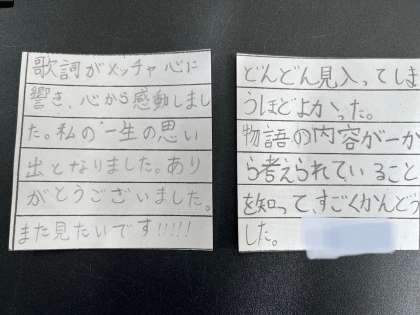 歌詞がメッチャ心に
響き、心から感動しまし
た。私の一生の思い
出となりました。あり
がとうございました。
また見たいです!!!!!
どんどん見入ってしま
うほどよかった。
物語の内容が一か
ら考えられていること
を知って、すごくかんどう
した。